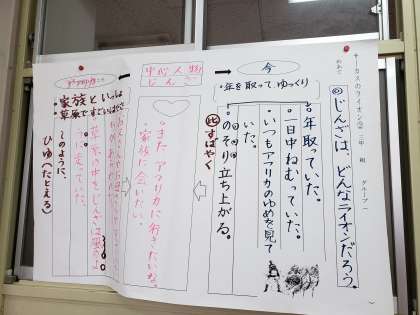 サーカスのライオン②
めあて
◎じんざは、どんなライオンだろう。
今
・年を取って ゆっくり
年取っていた。
一日中ねむっていた。
いつもアフリカのゆめを見て
いた。
のそり立ち上がる。
すばやく
中心人物
じんざ
・また アフリカに行きたいな。
・家族に会いたい。
・家族といっしょ
・草原ですごいはやさ
草原の中を、じんざは風のよ
うに走っていた。
しのように、
ひゆ(たとえる)